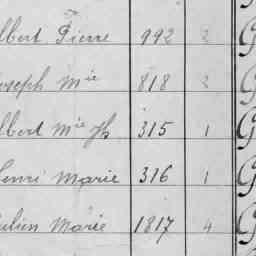 lbert Pierre 992 2 G
oseph Mie 818 2 G
lbert Mie Jh 315 1 G
enri Marie 316 1 G
ulien Marie 1817 4 G